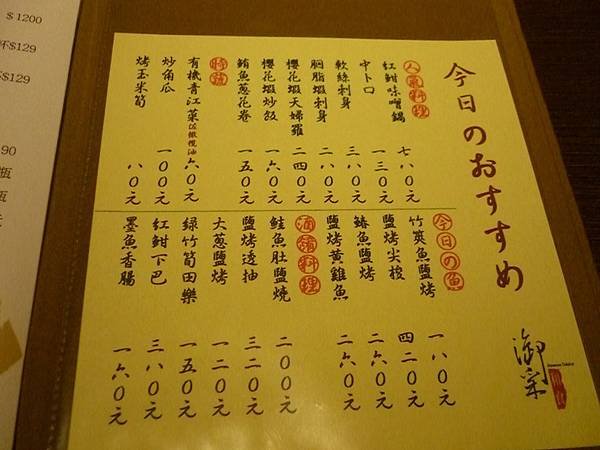 今日のおすすめ
人氣料理
紅魽味噌鍋 七八0元
中卜口 一三0元
軟絲刺身 三八0元
胭脂蝦刺身 二八0元
櫻花蝦天婦羅 二四0元
櫻花蝦炒飯 一六0元
鮪魚蔥花卷 一五0元
時蔬
有機青江菜佐橄欖油 六0元
炒角瓜 一00元
烤玉米筍 八0元
今日の魚
竹筴魚鹽烤 一八0元
鹽烤尖梭 四二0元
鰆魚鹽烤 二六0元
鹽烤黃雞魚 二六0元
酒餚料理
鮭魚肚鹽燒 二00元
鹽烤透抽 三二0元
大蔥鹽烤 一二0元
綠竹筍田樂 一五0元
紅魽下巴 三八0元
墨魚香腸 一六0元
御采
$1200
杯$129
$129
90
瓶
瓶
元